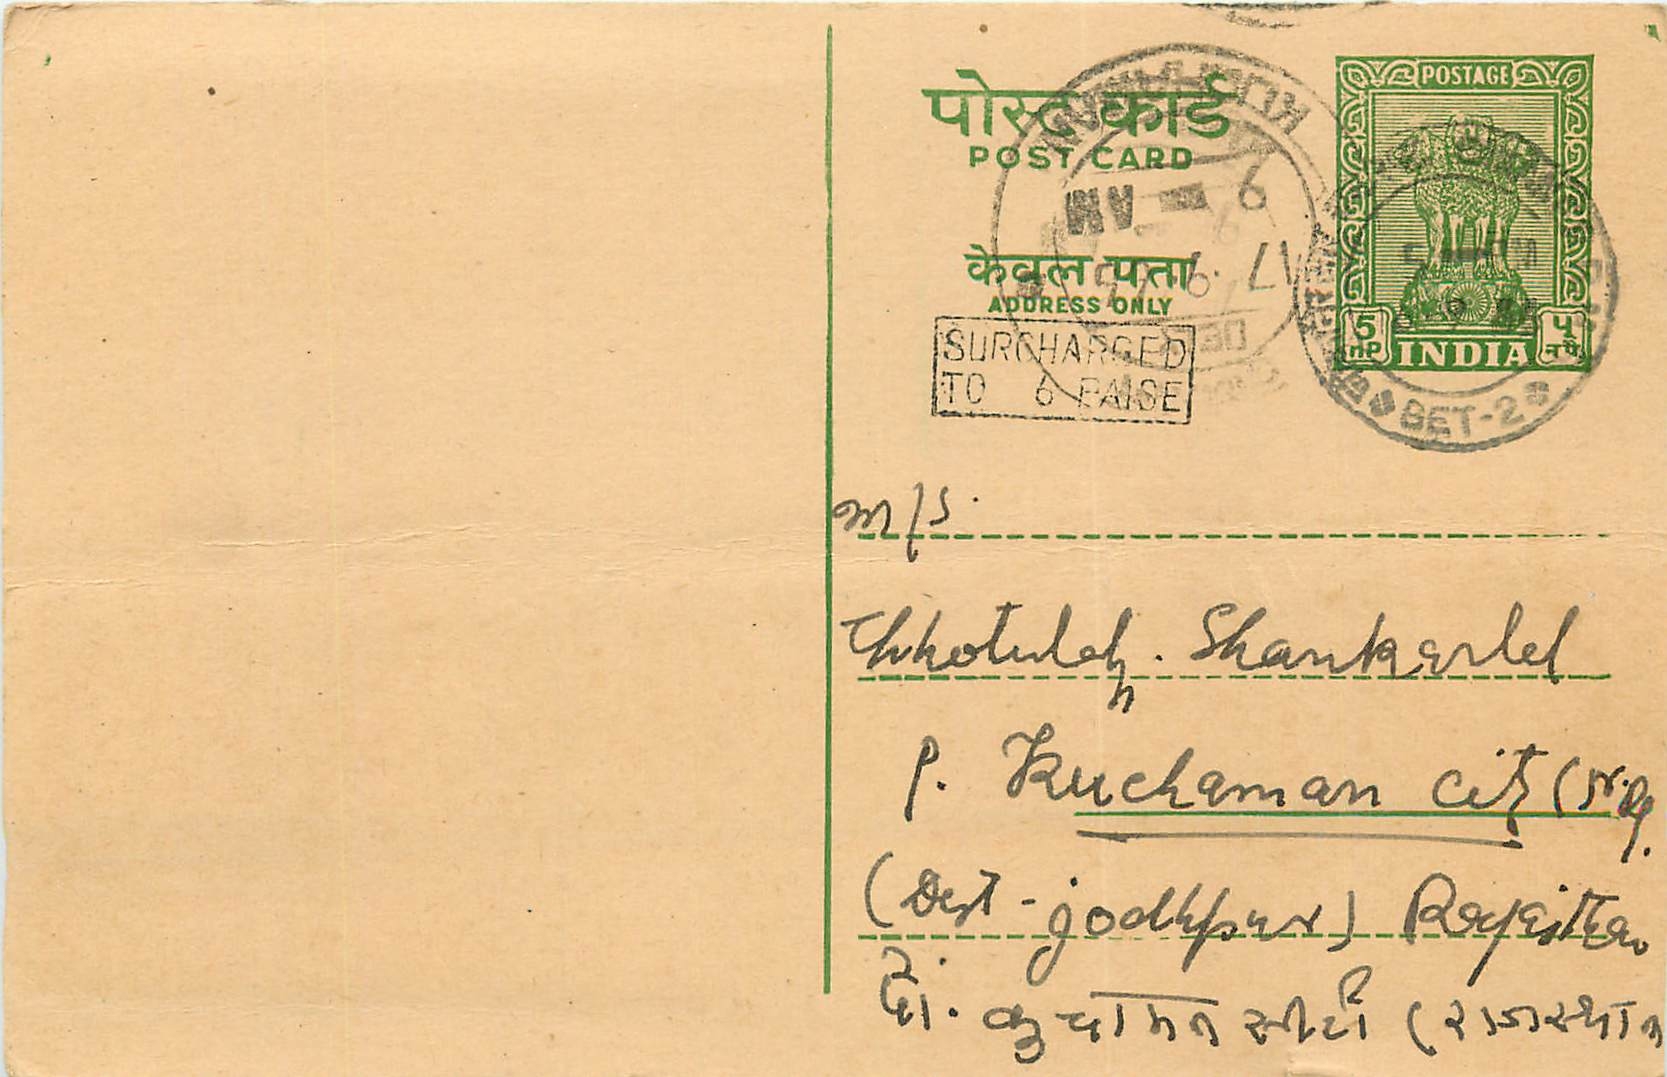 पोस्ट कार्ड
POST CARD
केवल पता
ADDRESS ONLY
SURCHARGED
TO 6 PAISE
POSTAGE
5 nP
INDIA
५ न.पै.
BET-2
M/S.
Shankerlal
P. Kuchaman City
(Dist - jodhpur) Rajasthan
पो. कुचामन सीटी (राजस्थान